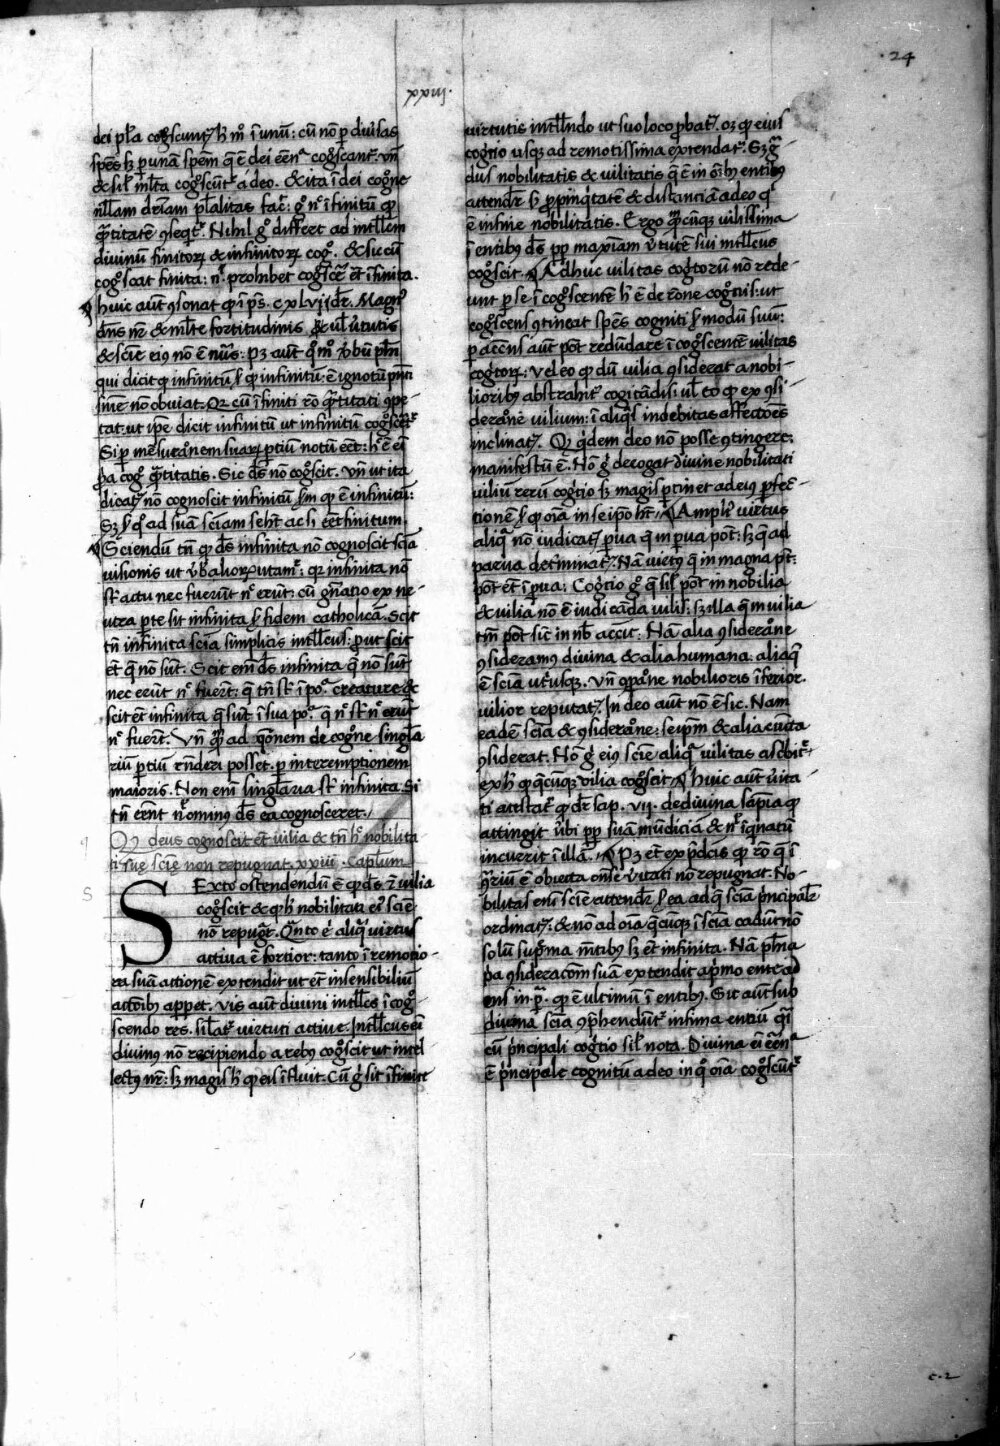 .24
xxiiȷ.
dei pl̃a cog̃scunt᷑ h̃ mº ĩ unũ: cũ nõ ꝑ diũsas
spẽs sꝫ ꝑ unã spẽm q̃ ẽ dei eẽnª cog̃scant᷑. vñ
& sil̃ ml̃ta cog̃scũt᷑ a deo. & ita ĩ dei cog̃ne
nl̃lam dr̃iam pl̃alitas fac̃: gº nº ĩfinitũ qꝫ
q̃titatẽ ꝯseq̃t᷑. Nihil gº differt ad intl̃lem
divinũ finitoꝝ & infinitoꝝ cogº. & sic cũ
cog̃scat finita: nº prohibet cog̃sc̃e et̃ ĩfinita.
huic aut̃ ꝯsonat qꝫ ĩ p̃s. cxlvj dr̃. Magnº
dñs nr̃ & ml̃te fortitudinis
& sciẽ eiꝰ nõ ẽ nũs: pꝫ aut̃ qºmº ũbũ ph̃i
qui dicit qꝫ infinitũ ẽ ignotũ
nõ obviat. Qꝫ cũ ĩfiniti rõ q̃titati ꝯpe-
tat: ut ip̃e dicit infinitũ ut infinitũ cog̃scet᷑
Si ꝑ mẽsurõnem suaꝝ ꝑtiũ notũ eẽt: h̃ ẽ eĩ
cogº q̃titatis. Sic d̃s nõ cog̃scit. vñ ut ita
dicat᷑ nõ cognoscit infinitũ qꝫ ẽ infinitũ:
Sꝫ ad suã sciam se h̃t ac si eẽt finitum.
Sciendũ tñ qꝫ d̃s infinita nõ cognoscit sc̃ia
visionis ut v̾bis alioꝝ utamr̃: qꝛ infinita nõ
s̃t actu nec fuerũt nº erũt: cũ gñatio ex ne-
utra ꝑte sit infinita fidem catholicã. Scit
tñ infinita sc̃ia simplicis intl̃lcus: ꝓut scit
et̃ q̃ nõ sũt. Scit enĩ d̃s infinita q̃ nõ sũt
nec erũt nº fuer̃t: q̃ tñ s̃t ĩ poª creature &
scit et̃ infinita q̃ sũt ĩ sua poª q̃ nº s̃t nº erũt
nº fuer̃t. Vñ ad q̃onem de cog̃ne singl̃a
riũ ꝑtiũ rñderi posset ꝑ interemptionem
maioris. Non enĩ singl̃aria s̃t infinita. Si
tñ erñt nº ominus d̃s ea cognosceret.
q
Qꝫ deus cognoscit et̃ vilia & tñ h̃ nobilita-
ti suę scię non repugnat. xxiiii. Cap̃lum
s
SExto ostendendũ ẽ qꝫ d̃s et̃ vilia
cog̃scit & qꝫ h̃ nobilitati eiꝰ sciẽ
nõ repugt̃. Qñto ẽ aliq̃ virtus
activa ẽ fortior: tanto ĩ remotio-
ra suã actionẽ extendit ut et̃ in sensibiliũ
actõibꝰ apꝑet. Vis aut̃ divini intl̃lcs ĩ cogº
scendo res. sil̃at᷑ virtuti active. Intl̃lcus eĩ
divinꝰ nõ recipiendo a rebꝰ cog̃scit ut intel
lectꝰ nr̃: sꝫ magis h̃ qꝫ eis ĩfluit. Cũ g̊ sit ĩfinite
virtutis intll̃ndo ut suo loco ꝓbat᷑. oꝫ qꝫ eius
cog̃tio usqꝫ ad remotissima extendat᷑. Sꝫ gᵃ
dus nobilitatis & vilitatis q̃ ẽ in oĩbꝰ entibꝰ
attendr̃ ꝓpinq̃tatẽ & distanciã a deo q̃
ẽ in fine nobilitatis. Ergo q̃cũqꝫ vilissima
ĩ entibꝰ d̃s ꝓp maxiam v̾tutẽ sui intl̃lcus
cog̃scit. Adhuc vilitas cog̃toꝝ nõ rede-
unt ꝑ se ĩ cog̃scentẽ h̃ ẽ de rõne cog̃tõis: ut
cog̃scens ꝯtineat spẽs cogniti modũ suũ:
ꝑ accñs aut̃ põt redũdare ĩ cog̃scentẽ vilitas
cog̃toꝝ: vel eo qꝫ dũ vilia ꝯsiderat a nobi-
lioribꝰ abstrahit᷑ cogitãdis: ul̃ eo qꝫ ex ꝯsi-
derõne vilium: ĩ aliq̃s indebitas affectões
inclinat᷑. Qꝫ q̃dem deo nõ posse ꝯtingere:
manifestũ ẽ. Nõ g̊ derogat divine nobilitati
viliũ rerũ cog̃tio sꝫ magis ꝑtinet ad eiꝰ ꝑfec̃-
tionẽ qꝫ oĩa in se ip̃o h̃t. Ampliꝰ virtus
aliq̃ nõ iudicat᷑ ꝑva q̃ in ꝑva põt: sꝫ q̃ ad
parva det̾minat᷑. Nã virtꝰ q̃ in magna põt:
põt et̃ ĩ ꝑva: Cog̃tio gº q̃ sil̃ põt in nobilia
& vilia nõ ẽ iudicãda vilis: sꝫ illa q̃ in vilia
tm̃ põt sic̃ in nob̃ accĩt: Nã alia ꝯsiderõne
ꝯsideramus divina & alia humana. aliaqꝫ
ẽ sc̃ia ut̾usqꝫ. vñ ꝯparõne nobilioris ĩferior.
vilior reputat᷑. In deo aut̃ nõ ẽ sic. Nam
eadẽ sc̃ia & ꝯsiderõne: se ip̃m & alia cũcta
ꝯsiderat. Nõ g̊ eiꝰ sciẽ aliq̃ vilitas asc̃bit᷑
ex h̃ qꝫ q̃cũqꝫ vilia cog̃scit. huic aut̃ v̾ita-
ti attestat᷑ qꝫ dr̃ sap. vij. de divina sap̃ia qꝫ
attingit ũbiqꝫ ꝓp suã mũdiciã & nº ĩqnatũ
incurrit ĩ illã. Pꝫ et̃ ex p̃dcis qꝫ rõ q̃ ĩ
ꝯriũ ẽ obiecta onse v̾itati nõ repugnat. No-
bilitas enĩ sciẽ attendr̃ ea ad q̃ sc̃ia p̃ncipalr̃
ordinat᷑: & nõ ad oĩa q̃cũqꝫ ĩ sc̃ia cadũt: nõ
solũ sup̃ma ĩ entibꝰ sꝫ et̃ infinita. Nã ph̃ia
p̃a ꝯsideracõm suã extendit a p̾mo ente ad
ens in pª. qꝫ ẽ ultimũ ĩ entibꝰ. Sic aut̃ sub
divina sc̃ia ꝯp̃hendũt᷑ infima entiũ q̃i
cũ p̾ncipali cog̃tio sil̃ nota. Divina eĩ eẽnª
ẽ p̾ncipale cognitũ a deo in qº oĩa cog̃scũt᷑
c.2